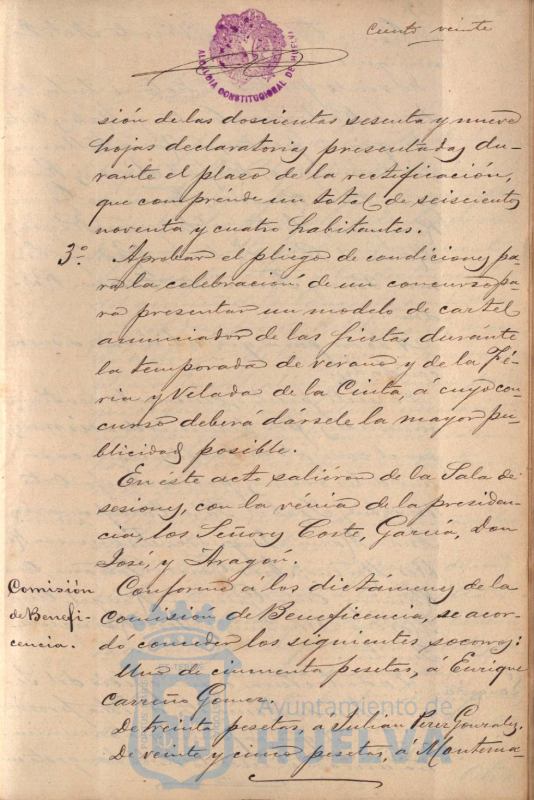 Ciento veinte
ALCALDIA CONSTITUCIONAL DE HUELVA
sión de las doscientas sesenta y nueve
hojas declaratorias presentadas du-
ránte el plazo de la rectificación,
que comprénde un total de seiscientos
noventa y cuatro habitantes.
3º. Aprobar el pliego de condiciones pa-
ra la celebración de un concurso pa-
ra presentar un modelo de cartel
anunciador de las fiestas duránte
la temporada de verano y de la Fé-
ria y Velada de la Cinta, á cuyo con-
curso deberá dársele la mayor pu-
blicidad posible.
En éste acto saliéron de la Sala de
sesiones, con la vénia de la presiden-
cia, los Señores Coste, García, Don
José, y Aragón.
Comisión
de Benefi-
cencia.
Conforme á los dictámenes de la
Comisión de Beneficencia, se acor-
dó conceder los siguientes socorros:
Uno de cincuenta pesetas, á Enrique
Carreño Gomez.
De treinta pesetas, á Julian Perez Gonzalez.
De veinte y cinco pesetas, á
Ayuntamiento de
HUELVA